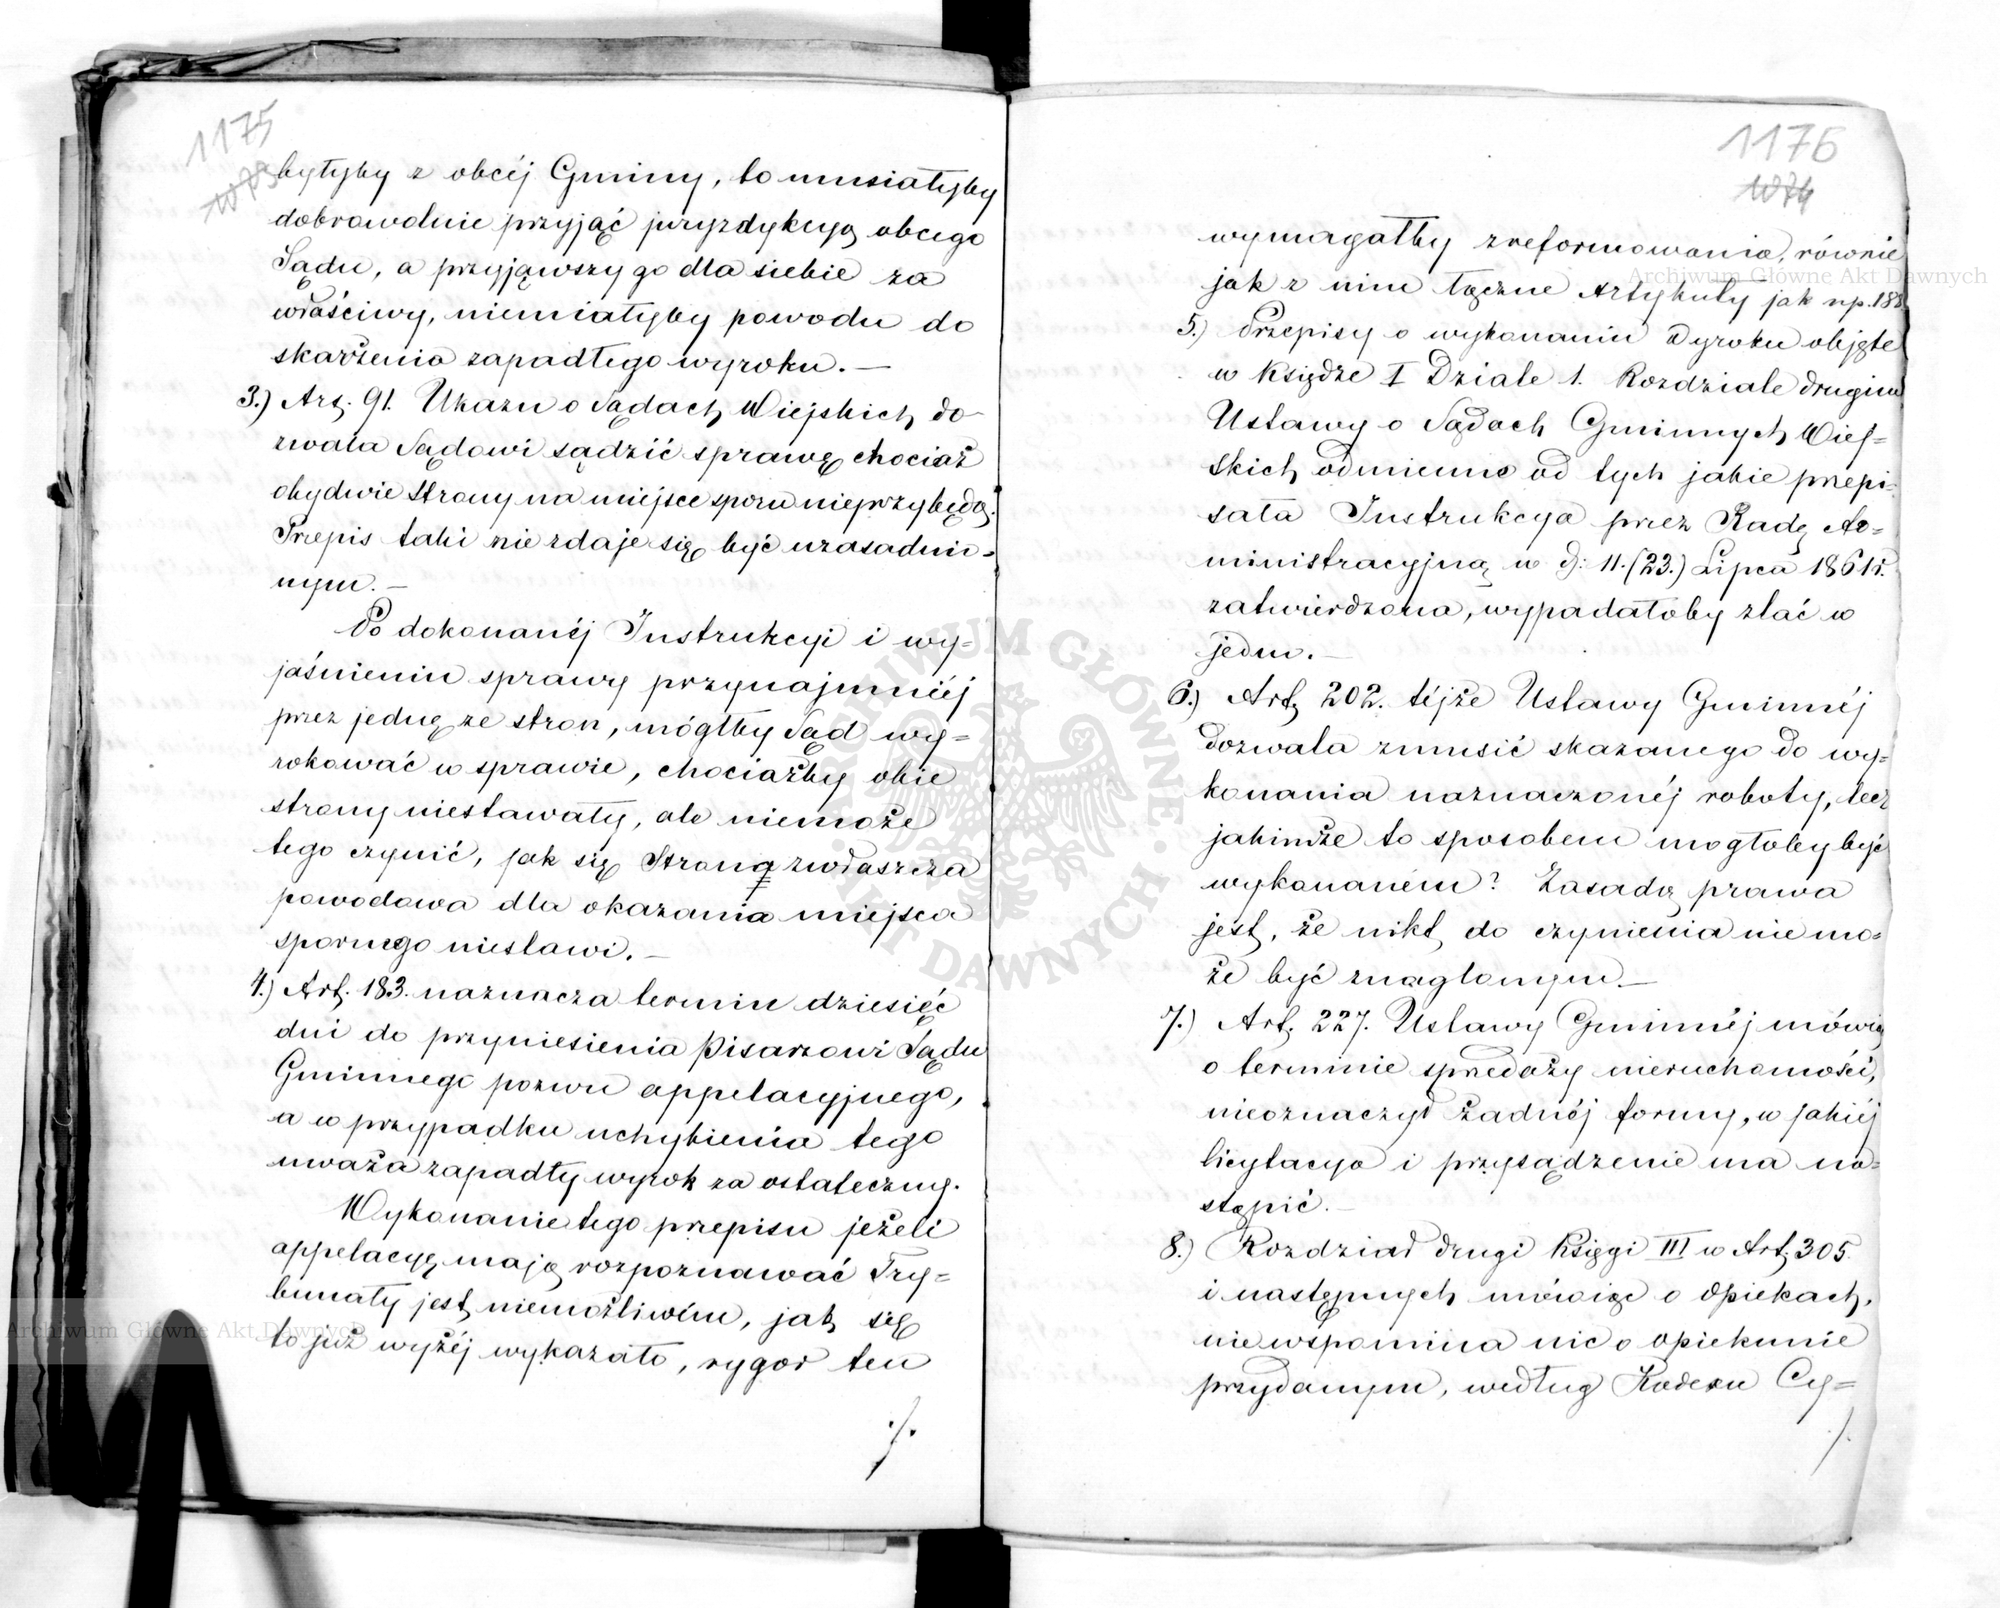 1175
1073
byłyby z obcéj Gminy, to musiałyby
dobrowolnie przyjąć juryzdykcyą obcego
Sądu, a przyjąwszy go dla siebie za
właściwy, niemiałyby powodu do
skarżenia zapadłego wyroku. —
3.) Art. 91. Ukazu o Sądach Wiejskich do-
zwala Sądowi sądzić sprawę chociaż
obydwie strony na miejsce sporu nieprzybędą.
Przepis taki nie zdaje się być uzasadnio-
nym. —
Po dokonanéj Instrukcyi i wy=
jaśnieniu sprawy przynajmniéj
przez jednę ze stron, mógłby Sąd wy=
rokować w sprawie, chociażby obie
strony niestawały, ale niemoże
tego czynić, jak się Strona zwłaszcza
powodowa dla okazania miejsca
spornego niestawi. —
4.) Art. 183. naznacza termin dziesięć
dni do przyniesienia Pisarzowi Sądu
Gminnego pozwu appelacyjnego,
a w przypadku uchybienia tego
uważa zapadły wyrok za ostateczny.
Wykonanie tego przepisu jeżeli
appelacyę mają rozpoznawać Try=
bunały jest niemożliwém, jak się
to już wyżéj wykazało, rygor ten
./.
1176
1074
wymagałby zreformowania, równie
jak z nim łączne Artykuły jak np. 188
5.) Przepisy o wykonaniu Wyroku objęte
w Księdze I Dziale 1. Rozdziale drugim
Ustawy o Sądach Gminnych Wiej=
skich odmienne od tych jakie przepi=
sała Instrukcya przez Radę Ad=
ministracyjną w d: 11. (23.) Lipca 1861 r.
zatwierdzona, wypadałoby zlać w
jedno. —
6.) Art. 202. téjże Ustawy Gminnéj
dozwala zmusić skazanego do wy=
konania naznaczonéj roboty, lecz
jakimże to sposobem mogłoby być
wykonaném? Zasadą prawa
jest, że nikt do czynienia nie mo=
że być znaglonym. —
7.) Art. 227. Ustawy Gminnéj mówiąc
o terminie sprzedaży nieruchomości,
nieoznaczył żadnéj formy, w jakiéj
licytacya i przysądzenie ma na=
stąpić. —
8.) Rozdział drugi Księgi III w Art. 305.
i następnych mówiąc o opiekach,
nie wspomina nic o opiekunie
przydanym, według Kodexu Cy=
./.
Archiwum Główne Akt Dawnych
Archiwum Główne Akt Dawnych
ARCHIWUM GŁÓWNE AKT DAWNYCH